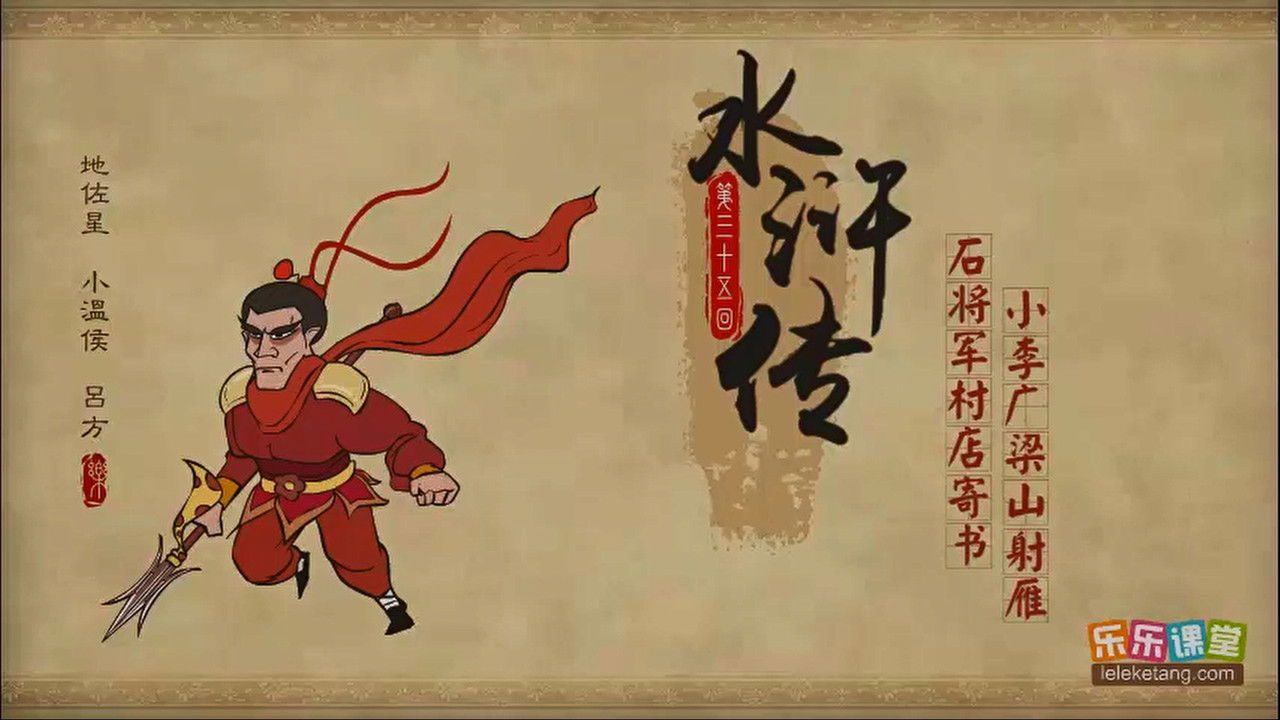 地佐星 小溫侯 呂方
樂
水浒传
第三十五回
石将军村店寄书
小李广梁山射雁
乐乐课堂
leleketang.com